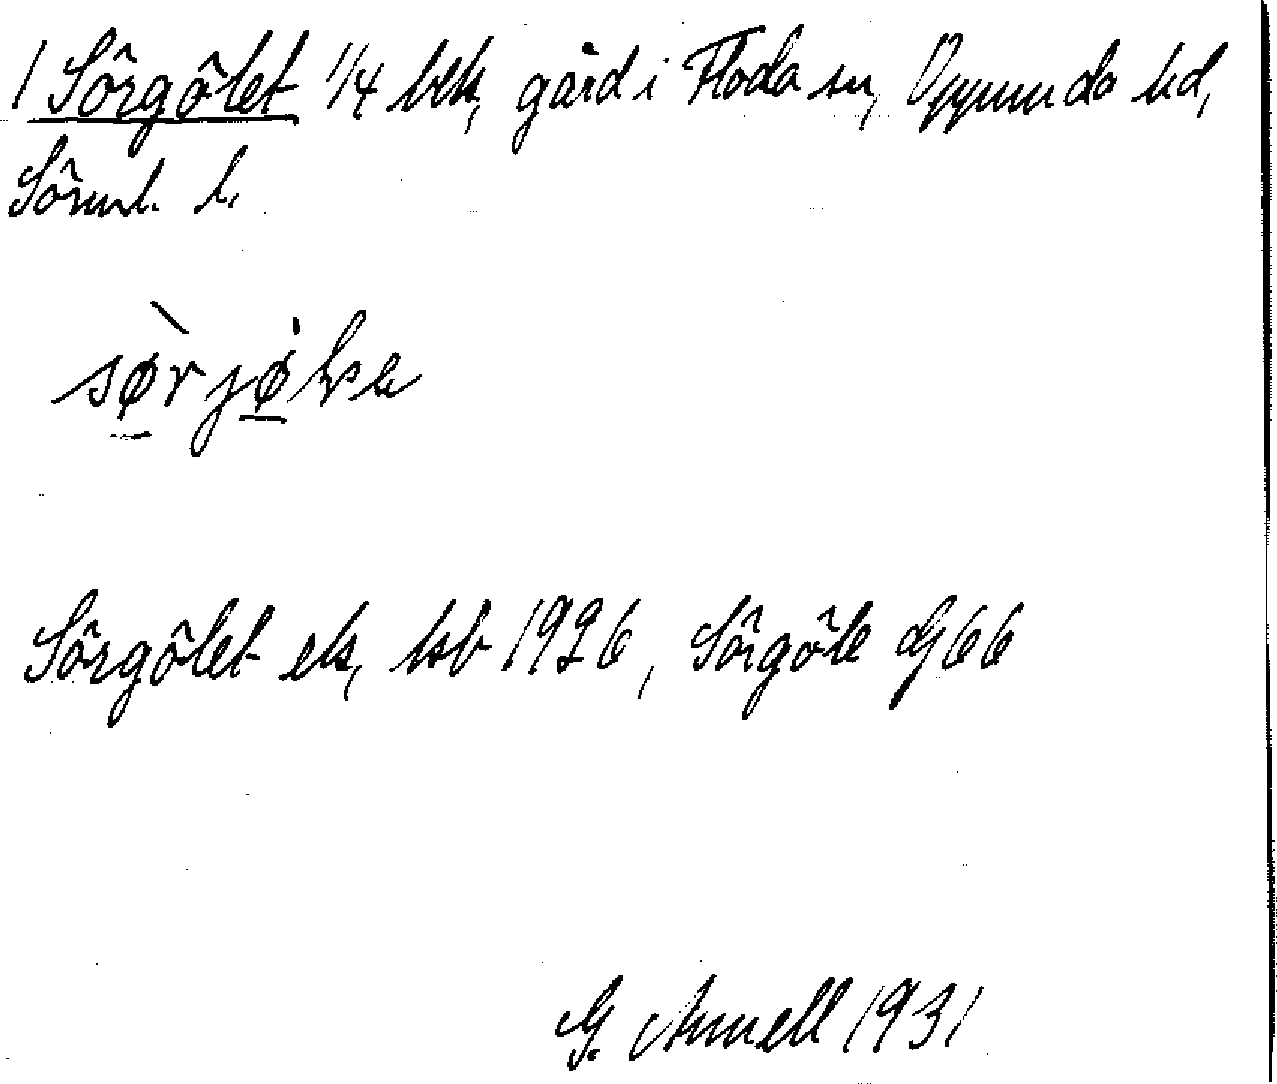 1 Sörgölet 1/4 blk, gård i Floda sn, Oppunda hd,
Sörml. l.
sørjøle
Sörgölet ek, kb 1926, Sörgöle GJ 66
G. Arnell 1931